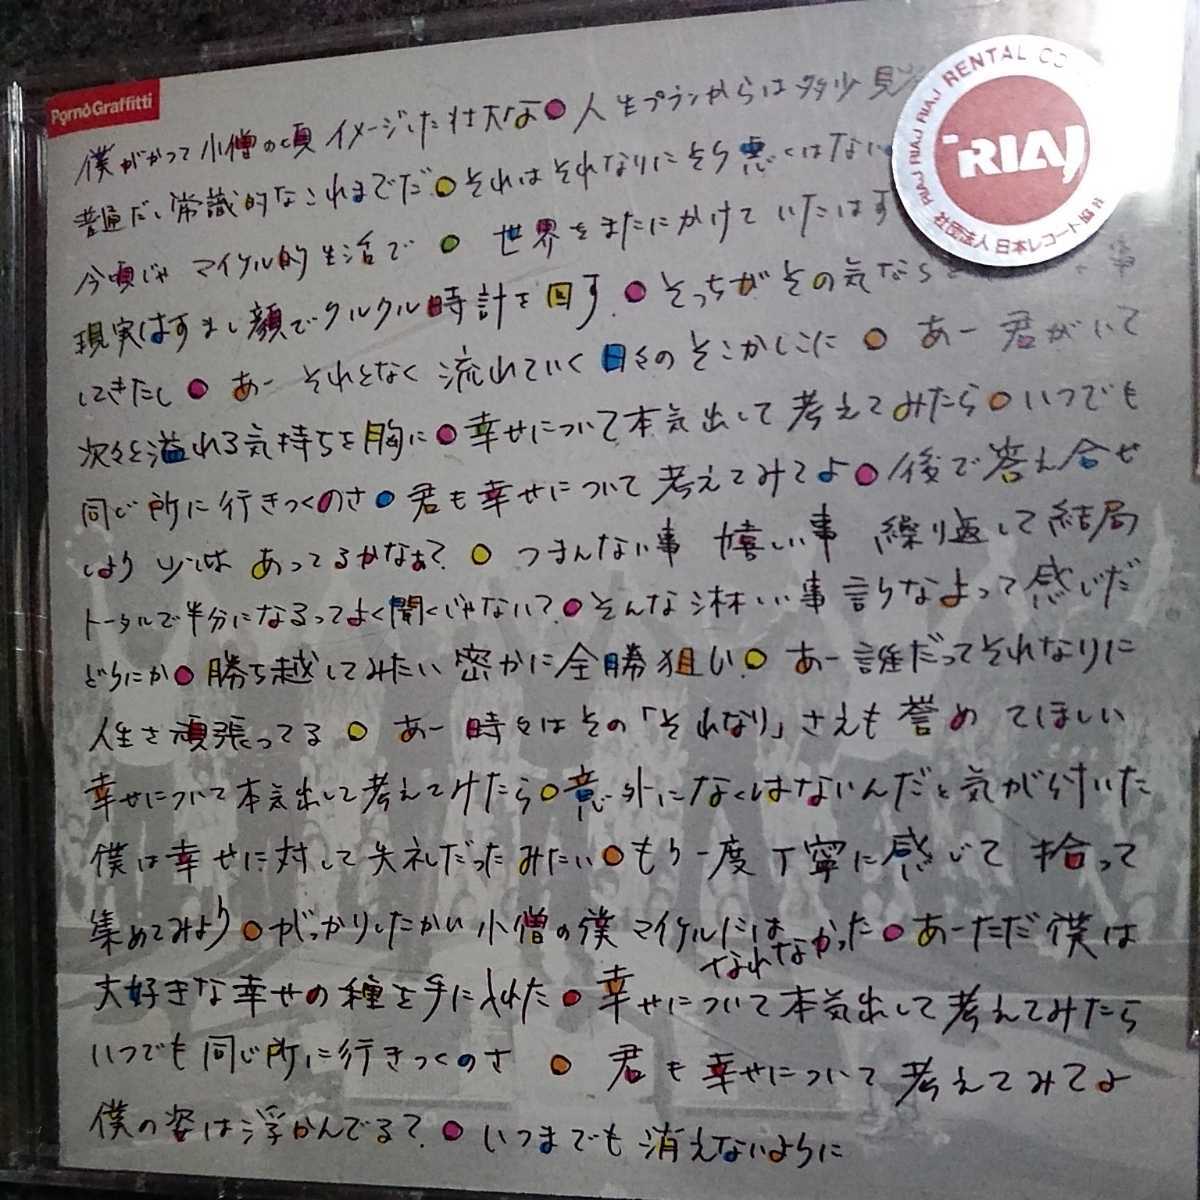 Porno Graffitti
RIAJ RIAJ RIAJ RENTAL CD
RIAJ
社団法人 日本レコード協会
僕がかつて小僧の頃 イメージした壮大な 人生プランからは多少 見
普通だし常識的なこれまでだ それはそれなりにそう悪くはない
今頃じゃ マイケル的生活で 世界をまたにかけて いたはず
現実はすまし顔でクルクル時計を回す そっちがその気なら 事
してきたし あー それとなく 流れていく 日々の そこかしこに あー 君がいて
次々と溢れる気持ちを胸に 幸せについて本気出して 考えてみたら いつでも
同じ所に行きつくのさ 君も幸せについて 考えてみてよ 後で答え合せ
しよう 少しは あってるかなぁ? つまんない事 嬉しい事 繰り返して 結局
トータルで半分になるってよく聞くじゃない? そんな淋しい事 言うなよって 感じだ
どうにか 勝ち越してみたい 密かに全勝狙い あー誰だってそれなりに
人生を頑張ってる あー時々はその「それなり」さえも 誉めてほしい
幸せについて本気出して考えてみたら 意外になくはないんだと気が付いた
僕は幸せに対して失礼だったみたい もう一度 丁寧に感じて 拾って
集めてみよう がっかりしたかい 小僧の僕 マイケルには なれなかった あーただ僕は
大好きな幸せの種を手に入れた 幸せについて本気出して考えてみたら
いつでも同じ所に行きつくのさ 君も幸せについて 考えてみてよ
僕の姿は浮かんでる? いつまでも消えないように